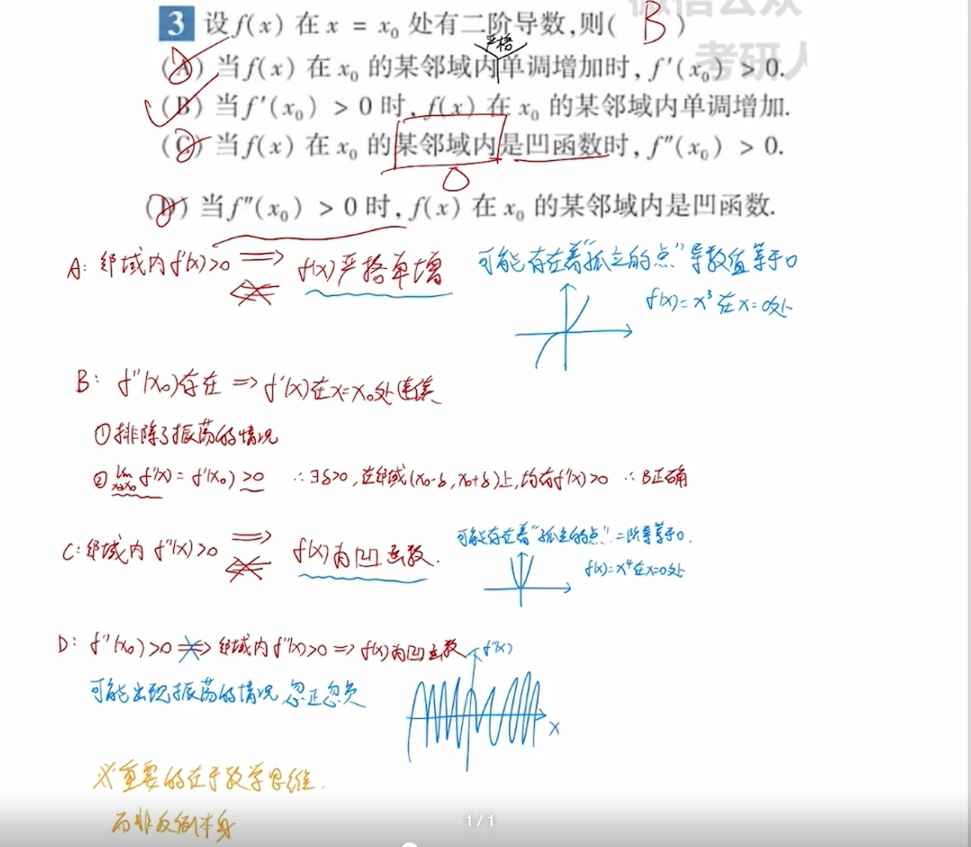 微信公众
考研人
3 设f(x) 在 x = x₀ 处有二阶导数,则( B )
严格
(A) 当f(x) 在 x₀ 的某邻域内单调增加时, f′(x₀) > 0.
(B) 当f′(x₀) > 0 时, f(x) 在 x₀ 的某邻域内单调增加.
(C) 当f(x) 在 x₀ 的某邻域内是凹函数时, f″(x₀) > 0.
(D) 当f″(x₀) > 0 时, f(x) 在 x₀ 的某邻域内是凹函数.
A: 邻域内f′(x)>0 ⇒ f(x)严格单增 可能存在着“孤立的点”导数值等于0
⇍ f(x)=x³在x=0处
B: f″(x₀)存在 ⇒ f′(x)在x=x₀处连续
①排除了振荡的情况
② lim x→x₀ f′(x) = f′(x₀) >0 ∴∃δ>0, 在邻域(x₀-δ, x₀+δ)上, 均有f′(x)>0 ∴B正确
C: 邻域内 f″(x)>0 ⇒ f(x)为凹函数. 可能存在着“孤立的点”二阶导等于0.
⇍ f(x)=x⁴在x=0处
D: f″(x₀)>0 ⇏ 邻域内f″(x)>0 ⇒ f(x)为凹函数 f″(x)
可能出现振荡的情况 忽正忽负
x
※重要的在于数学思维.
而非反例本身
1 / 1